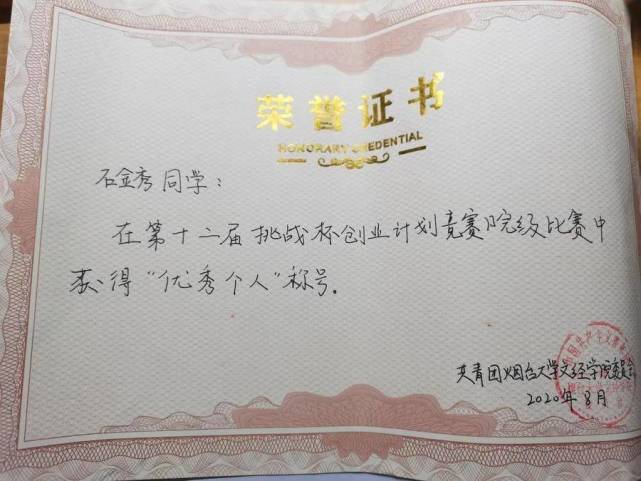 荣誉证书
HONORARY CREDENTIAL
石金秀同学：
在第十二届挑战杯创业计划竞赛院级比赛中
获得“优秀个人”称号.
共青团烟台大学文经学院委员会
2020年8月